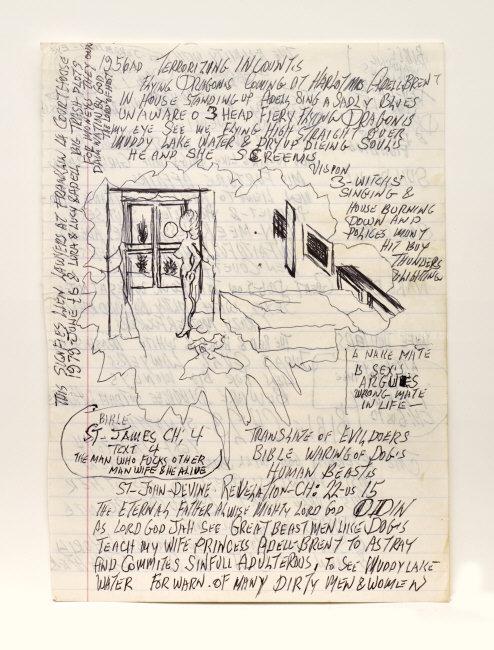 1956AD TERRORIZING INCOUNTS
FLYING DRAGONS LOOKING AT HARLOT MRS ADELL-BRENT
IN HOUSE STANDING UP ADELL SING A SADLY BLUES
UNAWARE O 3 HEAD FIERY FLYING DRAGONS
MY EYE SEE WE FLYING HIGH STRAIGHT OVER
MUDDY LAKE WATER & DRY UP DIEING SOULS
HE AND SHE SCREEMS
VISION
3-WITCHS
SINGING &
HOUSE BURNING
DOWN AND
POLICES
HIT BUY
THUNDERS
&LIGHTING
THIS SIGNFIES WHEN LAWYERS AT FRANKLIN CO COURTHOUSE
1979-JUNE 15 & LURA & LUCY & ADELL BIG TRISH PLOTS
FOR MONEYS THEY OWN
BY GOD
THE LORD & GHOST
A NAKE MATE
& SEX'S
ARGUES
WRONG MATE
IN LIFE—
BIBLE
ST-JAMES CH; 4
TEXT 4
THE MAN WHO FUCKS OTHER
MAN WIFE & HE ALIVE
TRANSLATE OF EVILDOERS
BIBLE WARING OF DOG'S
HUMAN BEASTS
ST-JOHN-DEVINE REVELATION-CH: 22-US 15
THE ETERNAL FATHER ALWISE MIGHTY LORD GOD ODIN
AS LORD GOD JAH SEE GREAT BEAST MEN LIKE DOGS
TEACH MY WIFE PRINCESS ADELL-BRENT TO ASTRAY
AND COMMITES SINFULL ADULTEROUS, TO SEE MUDDY LAKE
WATER FORWARN OF MANY DIRTY MEN & WOMEN